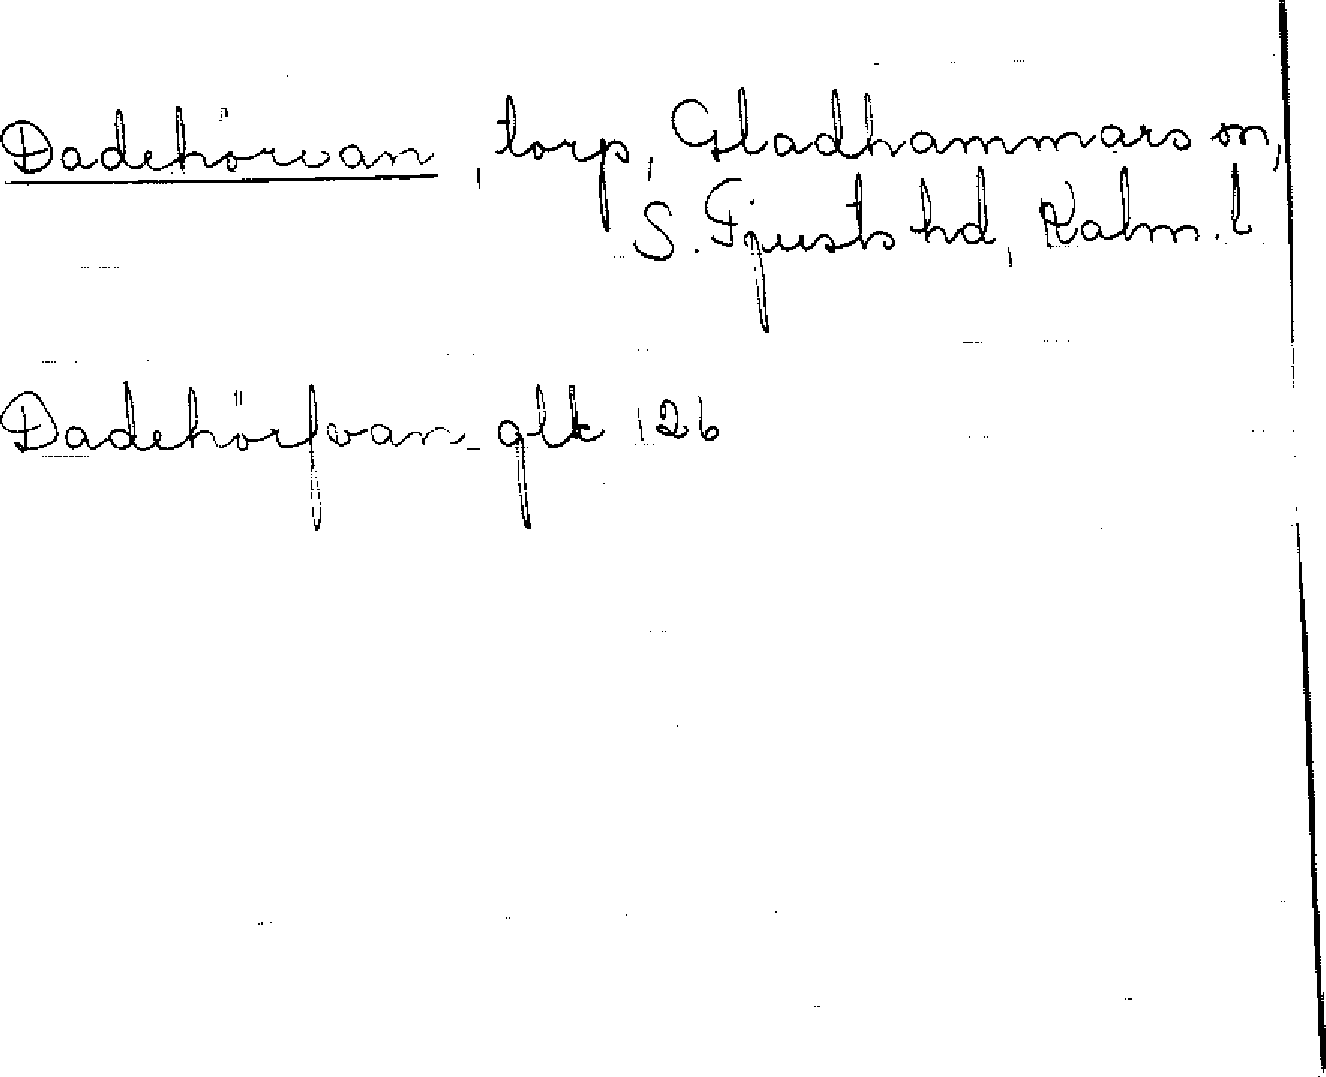 Dadehörvan, torp, Gladhammars sn,
S. Tjusts hd, Kalm. l
Dadehörfvan glk 126